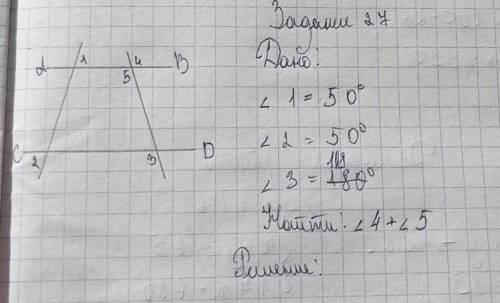 Задание 27
Дано:
∠1 = 50°
∠2 = 50°
108
∠3 = 180°
Найти: ∠4+∠5
Решение:
1 4
A B
5
C D
2 3